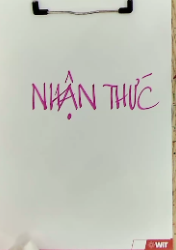 NHẬN THỨC
WIT